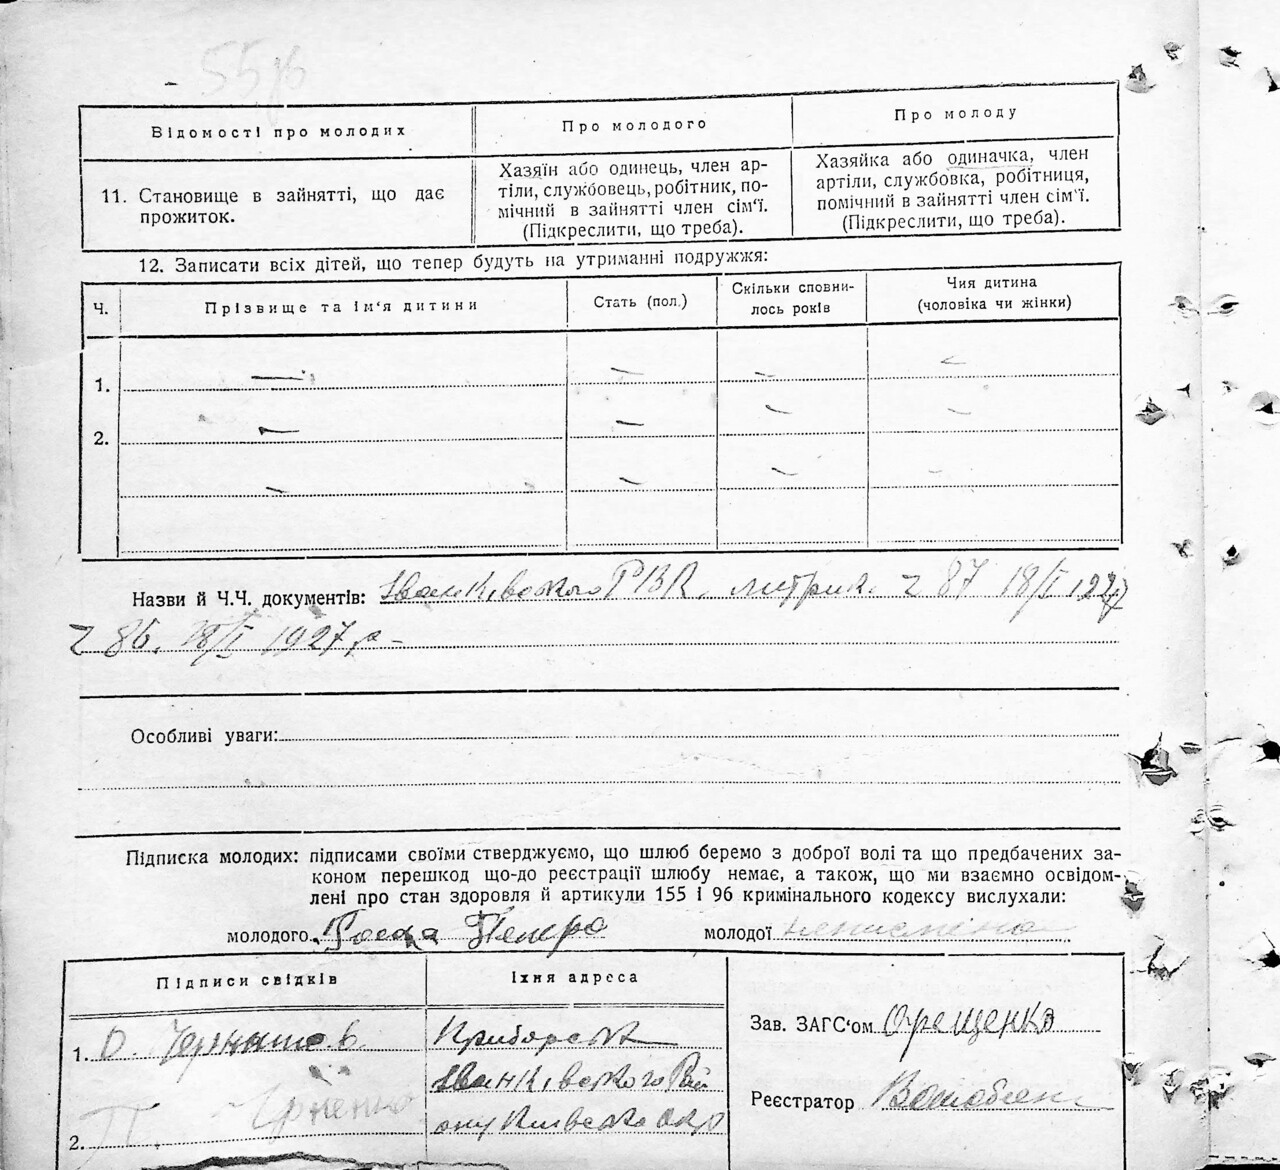 Відомості про молодих
Про молодого
Про молоду
11. Становище в зайнятті, що дає
прожиток.
Хазяїн або одинець, член ар-
тіли, службовець, робітник, по-
мічний в зайнятті член сім'ї.
(Підкреслити, що треба).
Хазяйка або одиначка, член
артіли, службовка, робітниця,
помічний в зайнятті член сім'ї.
(Підкреслити, що треба).
12. Записати всіх дітей, що тепер будуть на утриманні подружжя:
Ч.
Прізвище та ім'я дитини
Стать (пол.)
Скільки сповни-
лось років
Чия дитина
(чоловіка чи жінки)
1.
2.
Назви й Ч.Ч. документів: Іванківського РВК. метрик. 87 18/I 1927
86. 18/I 1927 р
Особливі уваги:
Підписка молодих: підписами своїми стверджуємо, що шлюб беремо з доброї волі та що предбачених за-
коном перешкод що-до реєстрації шлюбу немає, а також, що ми взаємно освідом-
лені про стан здоровля й артикули 155 і 96 кримінального кодексу вислухали:
молодого Петро молодої неписмена
Підписи свідків
Їхня адреса
1. О.
2. П.
Іванківського Рай
ону Київсько Окр
Зав. ЗАГС'ом Орещенко
Реєстратор